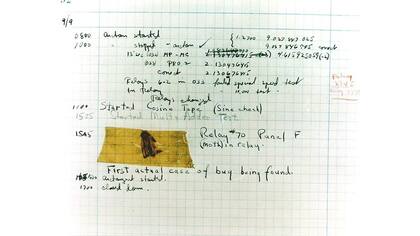 9/9
0800 antan started
1000 " stopped - antan ✓ { 1.2700 9.037 847 025
9.037 846 995 conect
13" uc (032) MP-MC 4.615925059(-2)
033 PRO 2 2.130476415
conect 2.130676415
Relays 6-2 in 033 failed special speed test
in Relay " test.
Relays changed
1100 Started Cosine Tape (Sine check)
1525 Started Multi Adder Test.
1545 Relay #70 Panel F
(moth) in relay.
First actual case of bug being found.
antangent started.
1700 closed down.